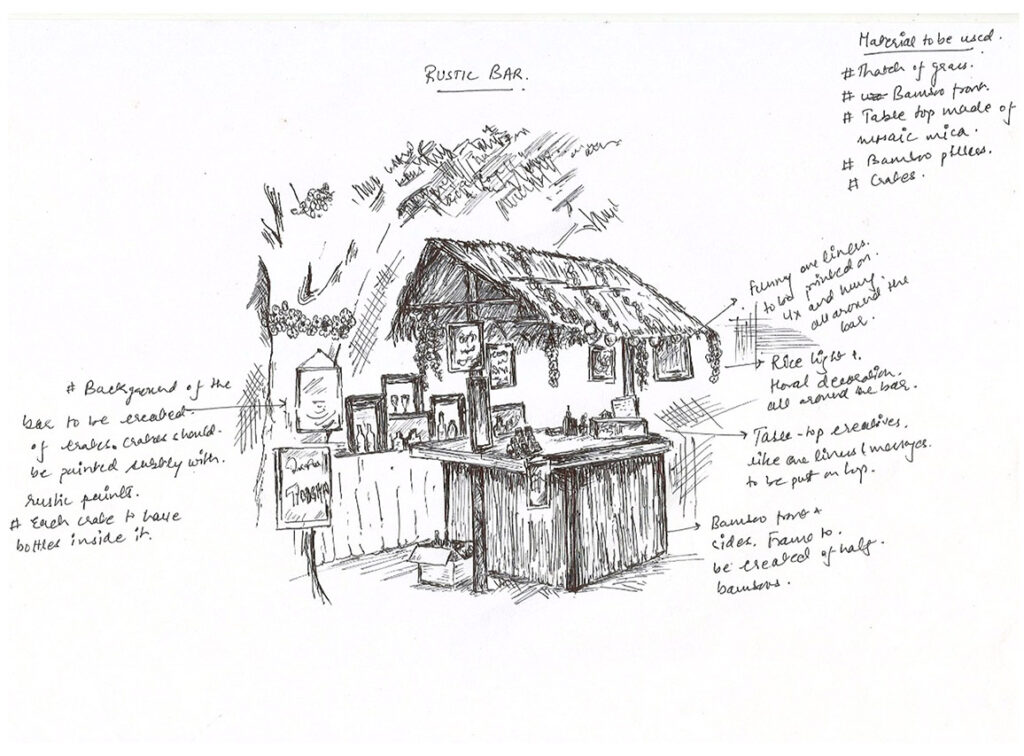 RUSTIC BAR.
Material to be used.
# Thatch of grass.
# Bamboo front.
# Table top made of
mosaic mica.
# Bamboo pillers.
# Crates.
Funny one liners.
to be printed on.
4x and hung.
all around the
bar.
Rice light +
floral decoration.
all around the bar.
Table-top creatives.
like one liners / messages.
to be put on top.
Bamboo front +
sides. Frame to.
be created of half.
bamboos.
# Background of the
bar to be created.
of crates. crates should.
be painted subtly with.
rustic paints.
# Each crate to have
bottles inside it.